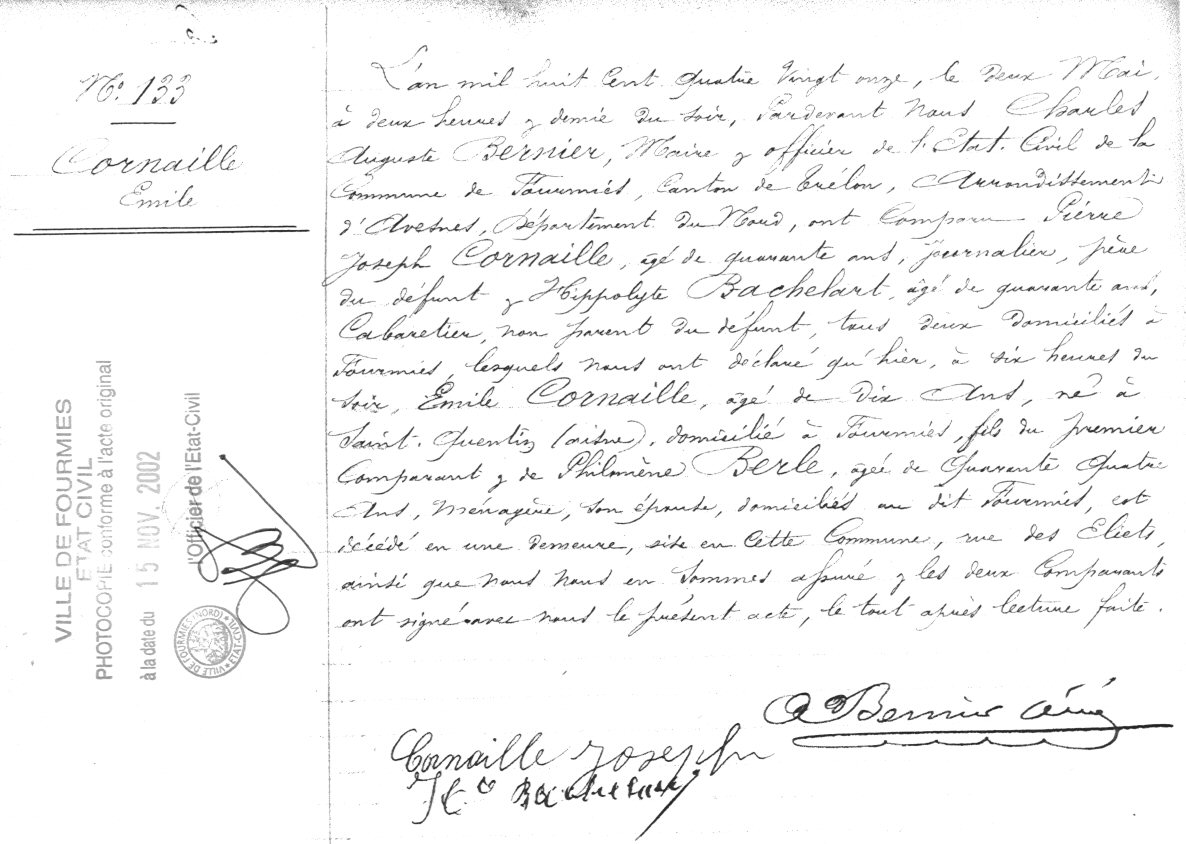 N° 133
Cornaille
Emile
L'an mil huit cent quatre vingt onze, le deux Mai,
à deux heures & demie du soir, Pardevant Nous Charles
Auguste Bernier, Maire & officier de l'Etat-Civil de la
Commune de Fourmies, Canton de Trélon, Arrondissement
d'Avesnes, Département du Nord, ont Comparu Piérre
Joseph Cornaille, âgé de quarante ans, journalier, père
du défunt & Hippolyte Bachelart, âgé de quarante ans,
Cabaretier, non parent du défunt, tous deux domiciliés à
Fourmies, lesquels nous ont déclaré qu'hier, à six heures du
soir, Emile Cornaille, âgé de Dix Ans, né à
Saint-Quentin (aisne), domicilié à Fourmies, fils du premier
Comparant & de Philomène Berle, âgée de Quarante Quatre
Ans, Ménagère, son épouse, domiciliés au dit Fourmies, est
décédé en une demeure, site en Cette Commune, rue des Eliets,
ainsi que nous nous en sommes assuré & les deux Comparants
ont signé avec nous le présent acte, le tout après lecture faite.
A Bernier
Cornaille Joseph
VILLE DE FOURMIES
ETAT CIVIL
PHOTOCOPIE conforme à l'acte original
à la date du 15 NOV. 2002
l'Officier de l'Etat-Civil
VILLE DE FOURMIES (NORD) ETAT-CIVIL